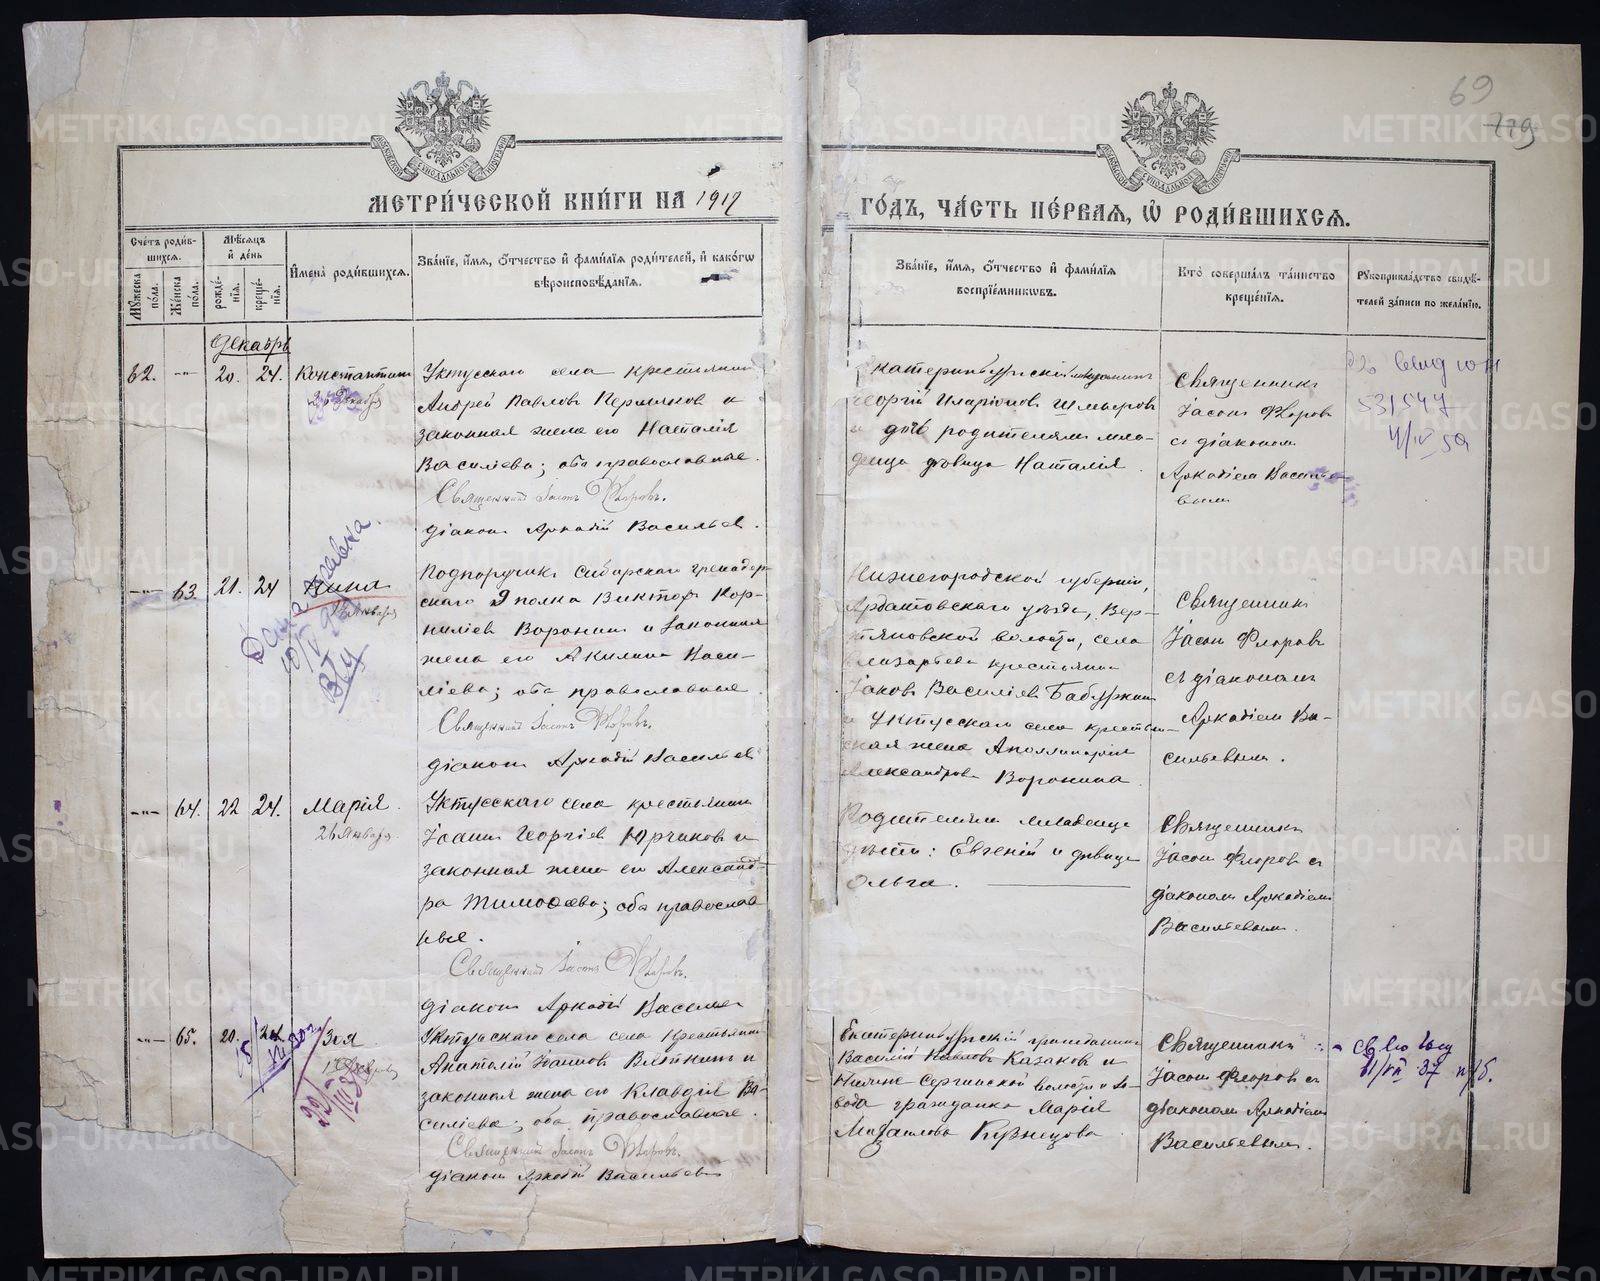 69
729
МЕТРИЧЕСКОЙ КНИГИ НА 1917
ГОДЪ, ЧАСТЬ ПЕРВАЯ, Ѡ РОДИВШИХСЯ.
Счетъ родив-
шихся.
Мужеска
пола.
Женска
пола.
Мѣсяцъ
и день
рожде-
нія.
креще-
нія.
Имена родившихся.
Званіе, имя, отчество и фамилія родителей, и какогѡ
вѣроисповѣданія.
Званіе, имя, отчество и фамилія
воспріемниковъ.
Кто совершалъ таинство
крещенія.
Рукоприкладство свидѣ-
телей записи по желанію.
Декабрь
62. -"- 20. 24. Константинъ
Уктусскаго села крестьянинъ
Андрей Павловъ Пермяковъ и
законная жена его Наталія
Василіева; оба православные.
Священникъ Іасонъ Флоровъ.
діаконъ Аркадій Васильевъ.
Екатеринбургскій
Георгій Иларіоновъ
и дочь родителямъ мла-
денца дѣвица Наталія
Священникъ
Іасонъ Флоровъ
съ діакономъ
Аркадіемъ Василье-
вымъ
531547
4/IV 59
-"- 63 21. 24 Нина
Января
Подпоручикъ Сибирскаго гренадер-
скаго 9 полка Викторъ Кор-
ниліевъ Воронинъ и законная
жена его Акилина Васи-
ліева; оба православные
Священникъ Іасонъ Флоровъ.
діаконъ Аркадій Васильевъ
Нижегородской губерніи,
Ардатовскаго уѣзда, Вер-
тьяновской волости, села
Елизарьева крестьянинъ
Іаковъ Василіевъ Бабушкинъ
и Уктусскаго села крестьян-
ская жена Аполлинарія
Александрова Воронина
Священникъ
Іасонъ Флоровъ
съ діакономъ
Аркадіемъ Ва-
сильевымъ.
-"- 64. 22 24. Марія.
26 Января.
Уктусскаго села крестьянинъ
Іоаннъ Георгіевъ Юрчиковъ и
законная жена его Александ-
ра Тимоѳеева; оба православ
ные.
Священникъ Іасонъ Флоровъ.
діаконъ Аркадій Васильевъ
Родителями младенца
дѣти: Евгеній и дѣвица
Ольга.
Священникъ
Іасонъ Флоровъ съ
діакономъ Аркадіемъ
Васильевымъ.
-"- 65. 20. 24. Зоя
Уктусскаго села села крестьянинъ
Анатолій Іоанновъ Вяткинъ и
законная жена его Клавдія Ва-
силіева; оба православные.
Священникъ Іасонъ Флоровъ.
діаконъ Аркадій Васильевъ
Екатеринбургскій гражданинъ
Василій Павловъ Казаковъ и
Нижне Сергинской волости и за-
вода гражданка Марія
Михаилова Кузнецова
Священникъ
Іасонъ Флоровъ съ
діакономъ Аркадіемъ
Васильевымъ.
11/VII 37
METRIKI.GASO-URAL.RU